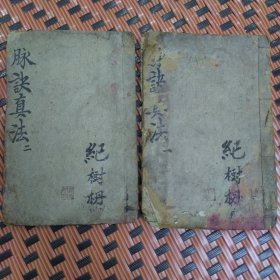 脉訣真法二
紀樹柵
訣真法一
紀樹柵